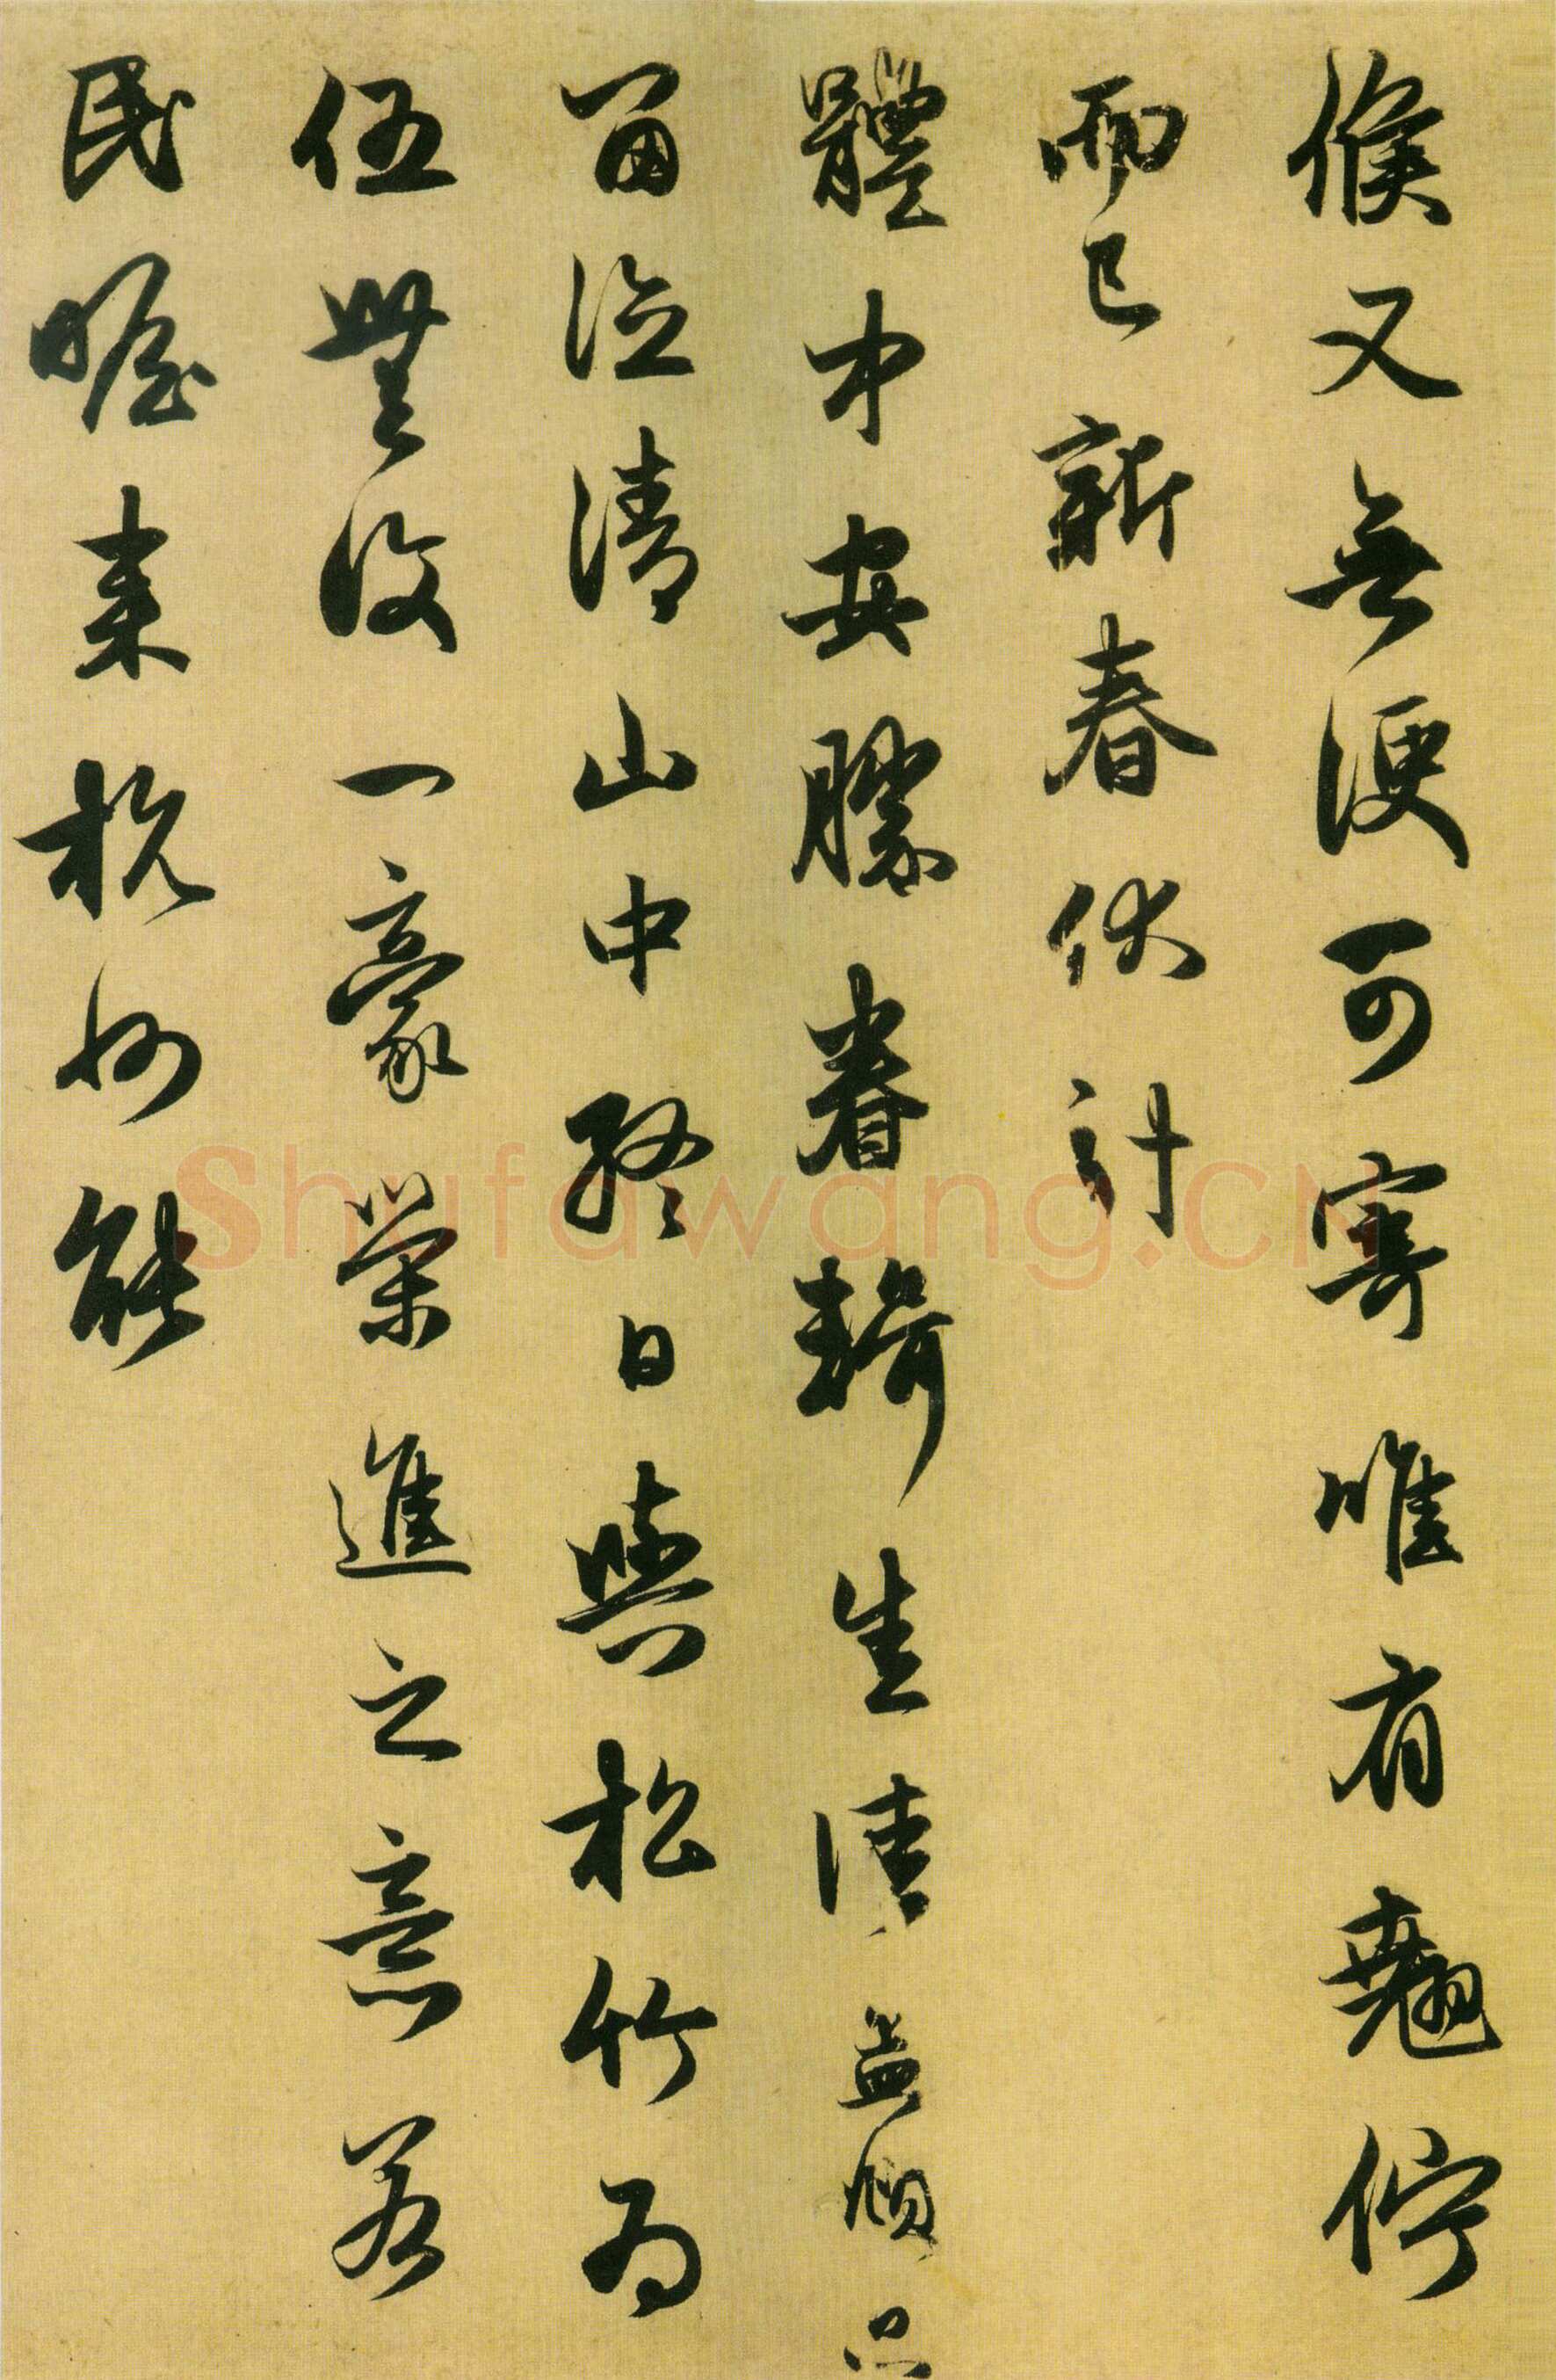 候又無便可寄唯有翹佇
而已新春伏計
體中安勝眷輯生清益順只
留德清山中終日與松竹為
伍無復一豪榮進之意若
民瞻來杭州能
Shufawang.CN